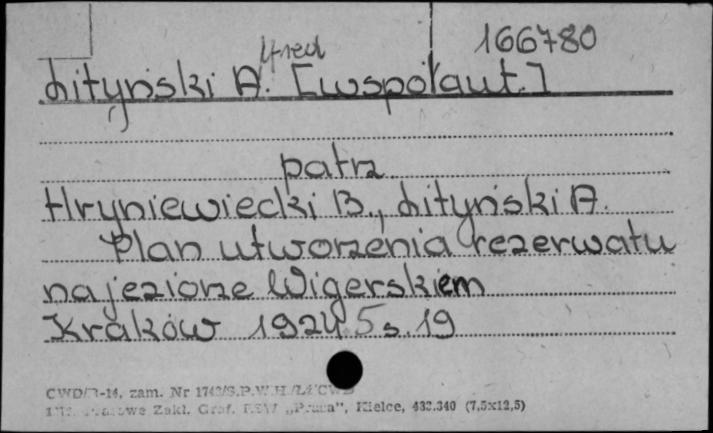 166780
lfred
Lityński A. [współaut.]
patrz
Hryniewiecki B., Lityński A.
Plan utworzenia rezerwatu
na jeziorze Wigerskiem
Kraków 1924 5 s. 19
CWD/ -14, zam. Nr 1742/S.P.W.H./Lż CWD
Zakl. Graf. RSW „Prasa”, Kielce, 432.340 (7,5x12,5)